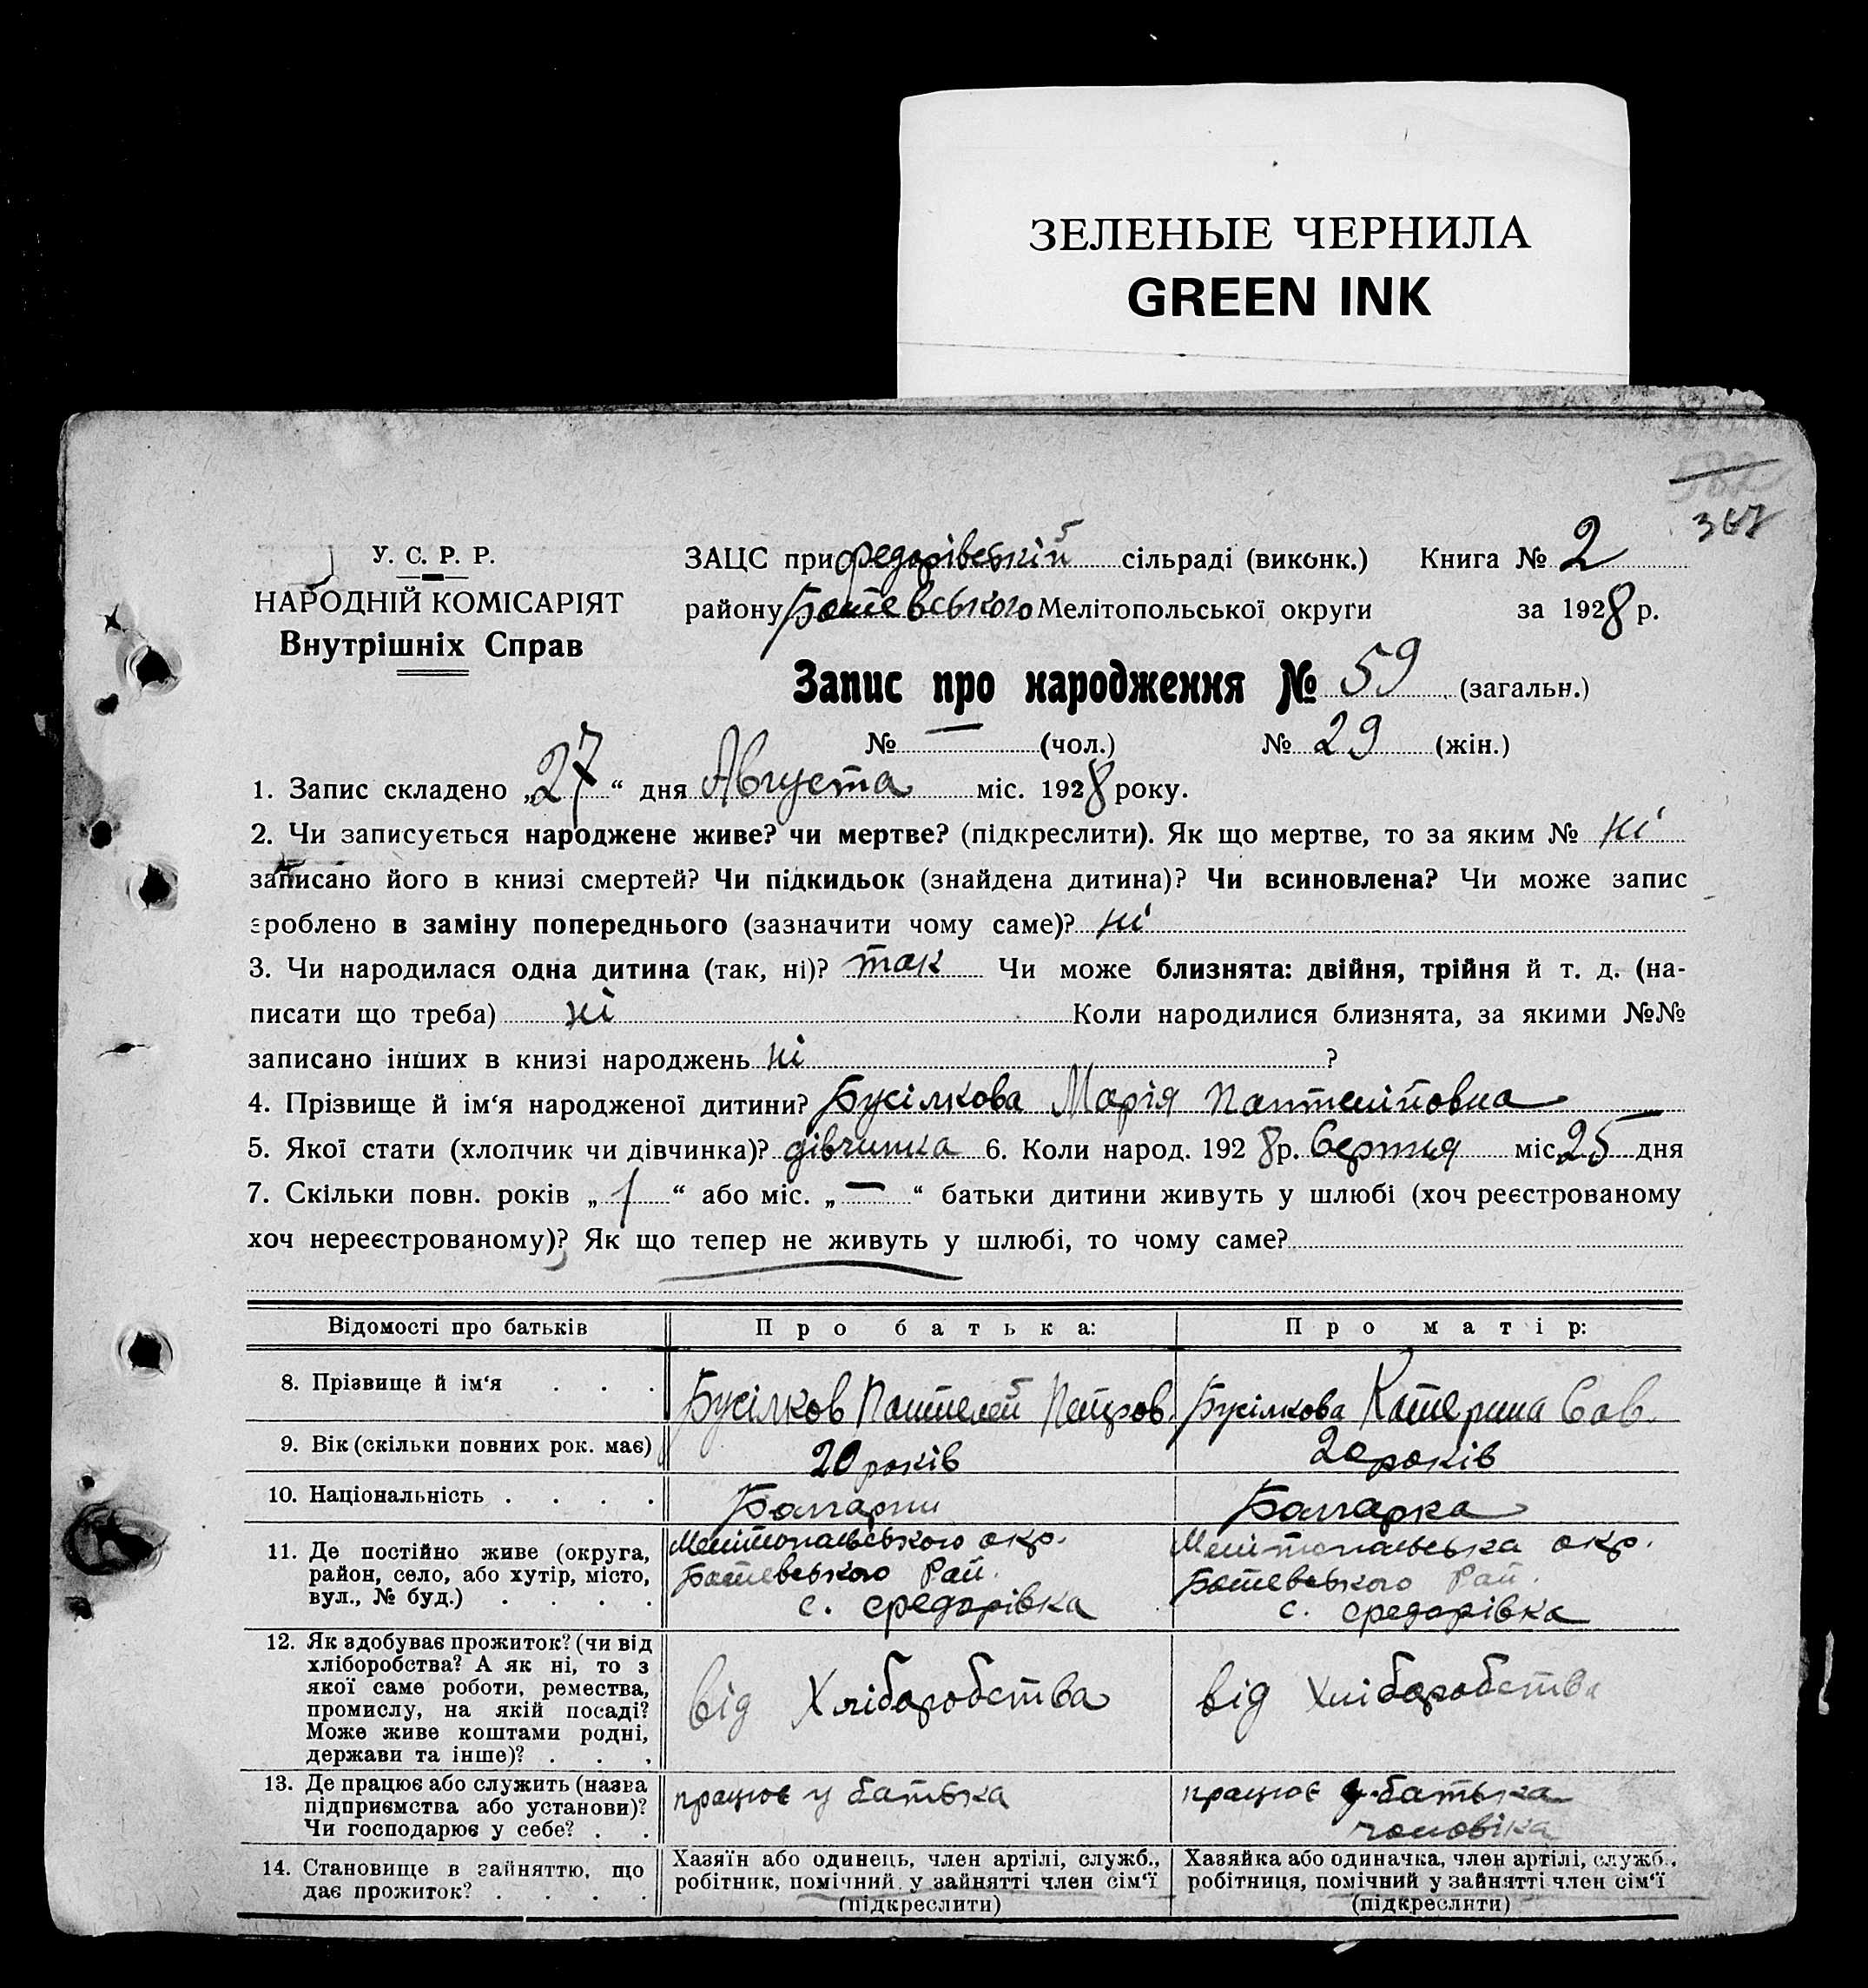 ЗЕЛЕНЫЕ ЧЕРНИЛА
GREEN INK
582
367
У. С. Р. Р.
НАРОДНІЙ КОМІСАРІЯТ
Внутрішніх Справ
ЗАЦС при Федорівській сільраді (виконк.) Книга № 2
району Ботевського Мелітопольської округи за 1928 р.
Запис про народження № 59 (загальн.)
№ — (чол.) № 29 (жін.)
1. Запис складено „27“ дня Августа міс. 1928 року.
2. Чи записується народжене живе? чи мертве? (підкреслити). Як що мертве, то за яким № ні
записано його в книзі смертей? Чи підкидьок (знайдена дитина)? Чи всиновлена? Чи може запис
зроблено в заміну попереднього (зазначити чому саме)? ні
3. Чи народилася одна дитина (так, ні)? так Чи може близнята: двійня, трійня й т. д. (на-
писати що треба) ні Коли народилися близнята, за якими №№
записано інших в книзі народжень ні ?
4. Прізвище й ім‘я народженої дитини? Бусілкова Марія Пантелійовна
5. Якої стати (хлопчик чи дівчинка)? дівчинка 6. Коли народ. 1928 р. Серпня міс. 25 дня
7. Скільки повн. років „1“ або міс. „—“ батьки дитини живуть у шлюбі (хоч реєстрованому
хоч нереєстрованому)? Як що тепер не живуть у шлюбі, то чому саме?
Відомості про батьків Про батька: Про матір:
8. Прізвище й ім‘я . . . Бусілков Пантелей Петров. Бусілкова Катерина Сав.
9. Вік (скільки повних рок. має) 20 років 20 років
10. Національність . . . . Болгарин Болгарка
11. Де постійно живе (округа, район, село, або хутір, місто, вул., № буд.) . . . .
Мелітопольського окр.
Ботевського Рай.
с. Федорівка
Мелітопольська окр.
Ботевського Рай.
с. Федорівка
12. Як здобуває прожиток? (чи від
хліборобства? А як ні, то з
якої саме роботи, ремества,
промислу, на якій посаді?
Може живе коштами родні,
держави та інше)? . . .
від Хліборобства
від Хліборобства
13. Де працює або служить (назва
підприємства або установи)?
Чи господарює у себе? . .
працює у батька
працює у батька
чоловіка
14. Становище в зайняттю, що
дає прожиток? . . . .
Хазяїн або одинець, член артілі, служб.,
робітник, помічний у зайнятті член сім‘ї
(підкреслити)
Хазяйка або одиначка, член артілі, служб.,
робітниця, помічний у зайнятті член сім‘ї
(підкреслити)